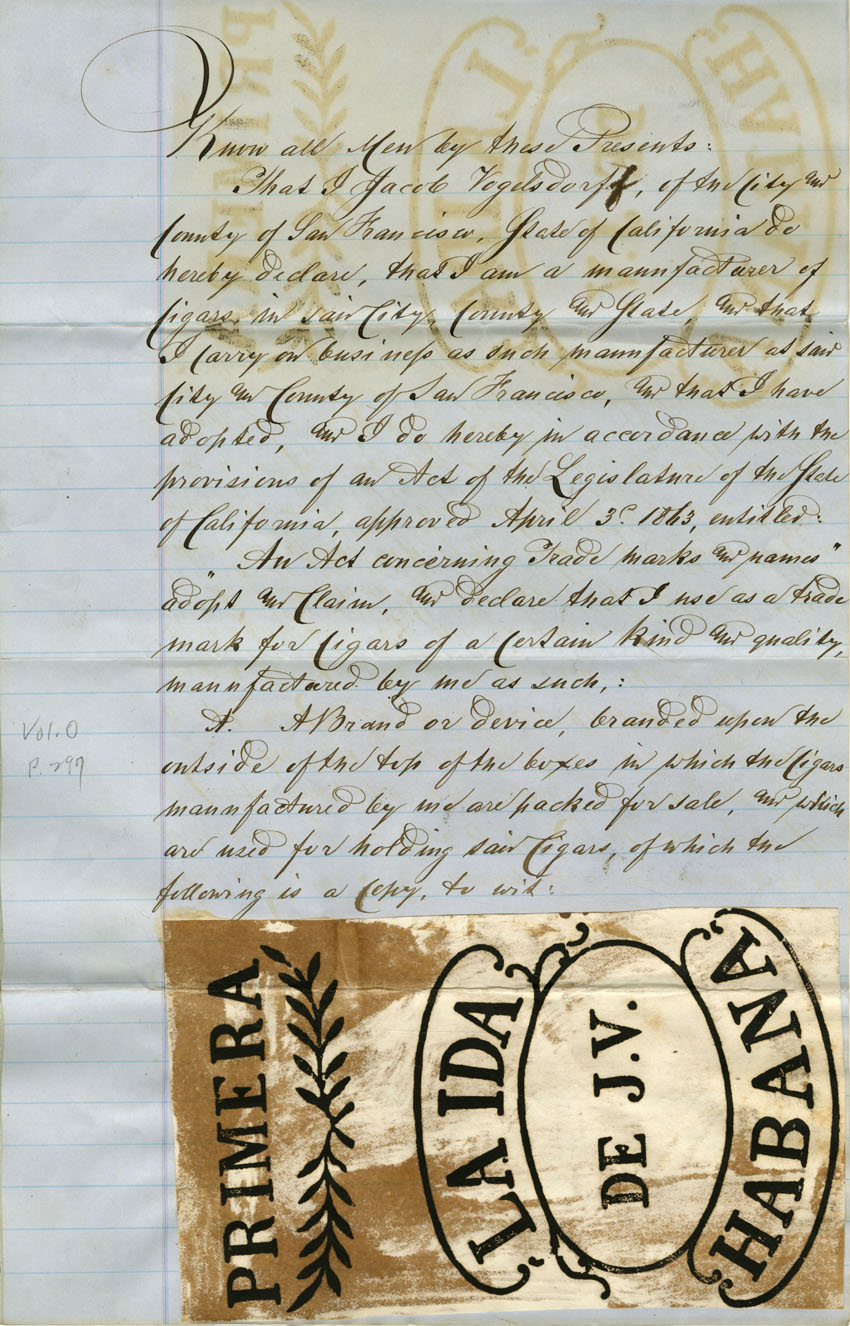 Know all Men by these Presents:
That I Jacob Vogelsdorff, of the City and
County of San Francisco, State of California do
hereby declare, that I am a manufacturer of
Cigars, in said City, County and State, and that
I carry on business as such manufacturer at said
City and County of San Francisco, and that I have
adopted, and I do hereby in accordance with the
provisions of an Act of the Legislature of the State
of California, approved April 3d 1863, entitled:
"An Act concerning Trade marks and names"
adopt and Claim, and declare that I use as a trade
mark for Cigars of a Certain kind and quality,
manufactured by me as such,:
A. A Brand or device, branded upon the
Vol. O
P. 297
outside of the top of the boxes in which the Cigars
manufactured by me are packed for sale, and which
are used for holding said Cigars, of which the
following is a Copy, to wit:
PRIMERA
LA IDA
DE J.V.
HABANA